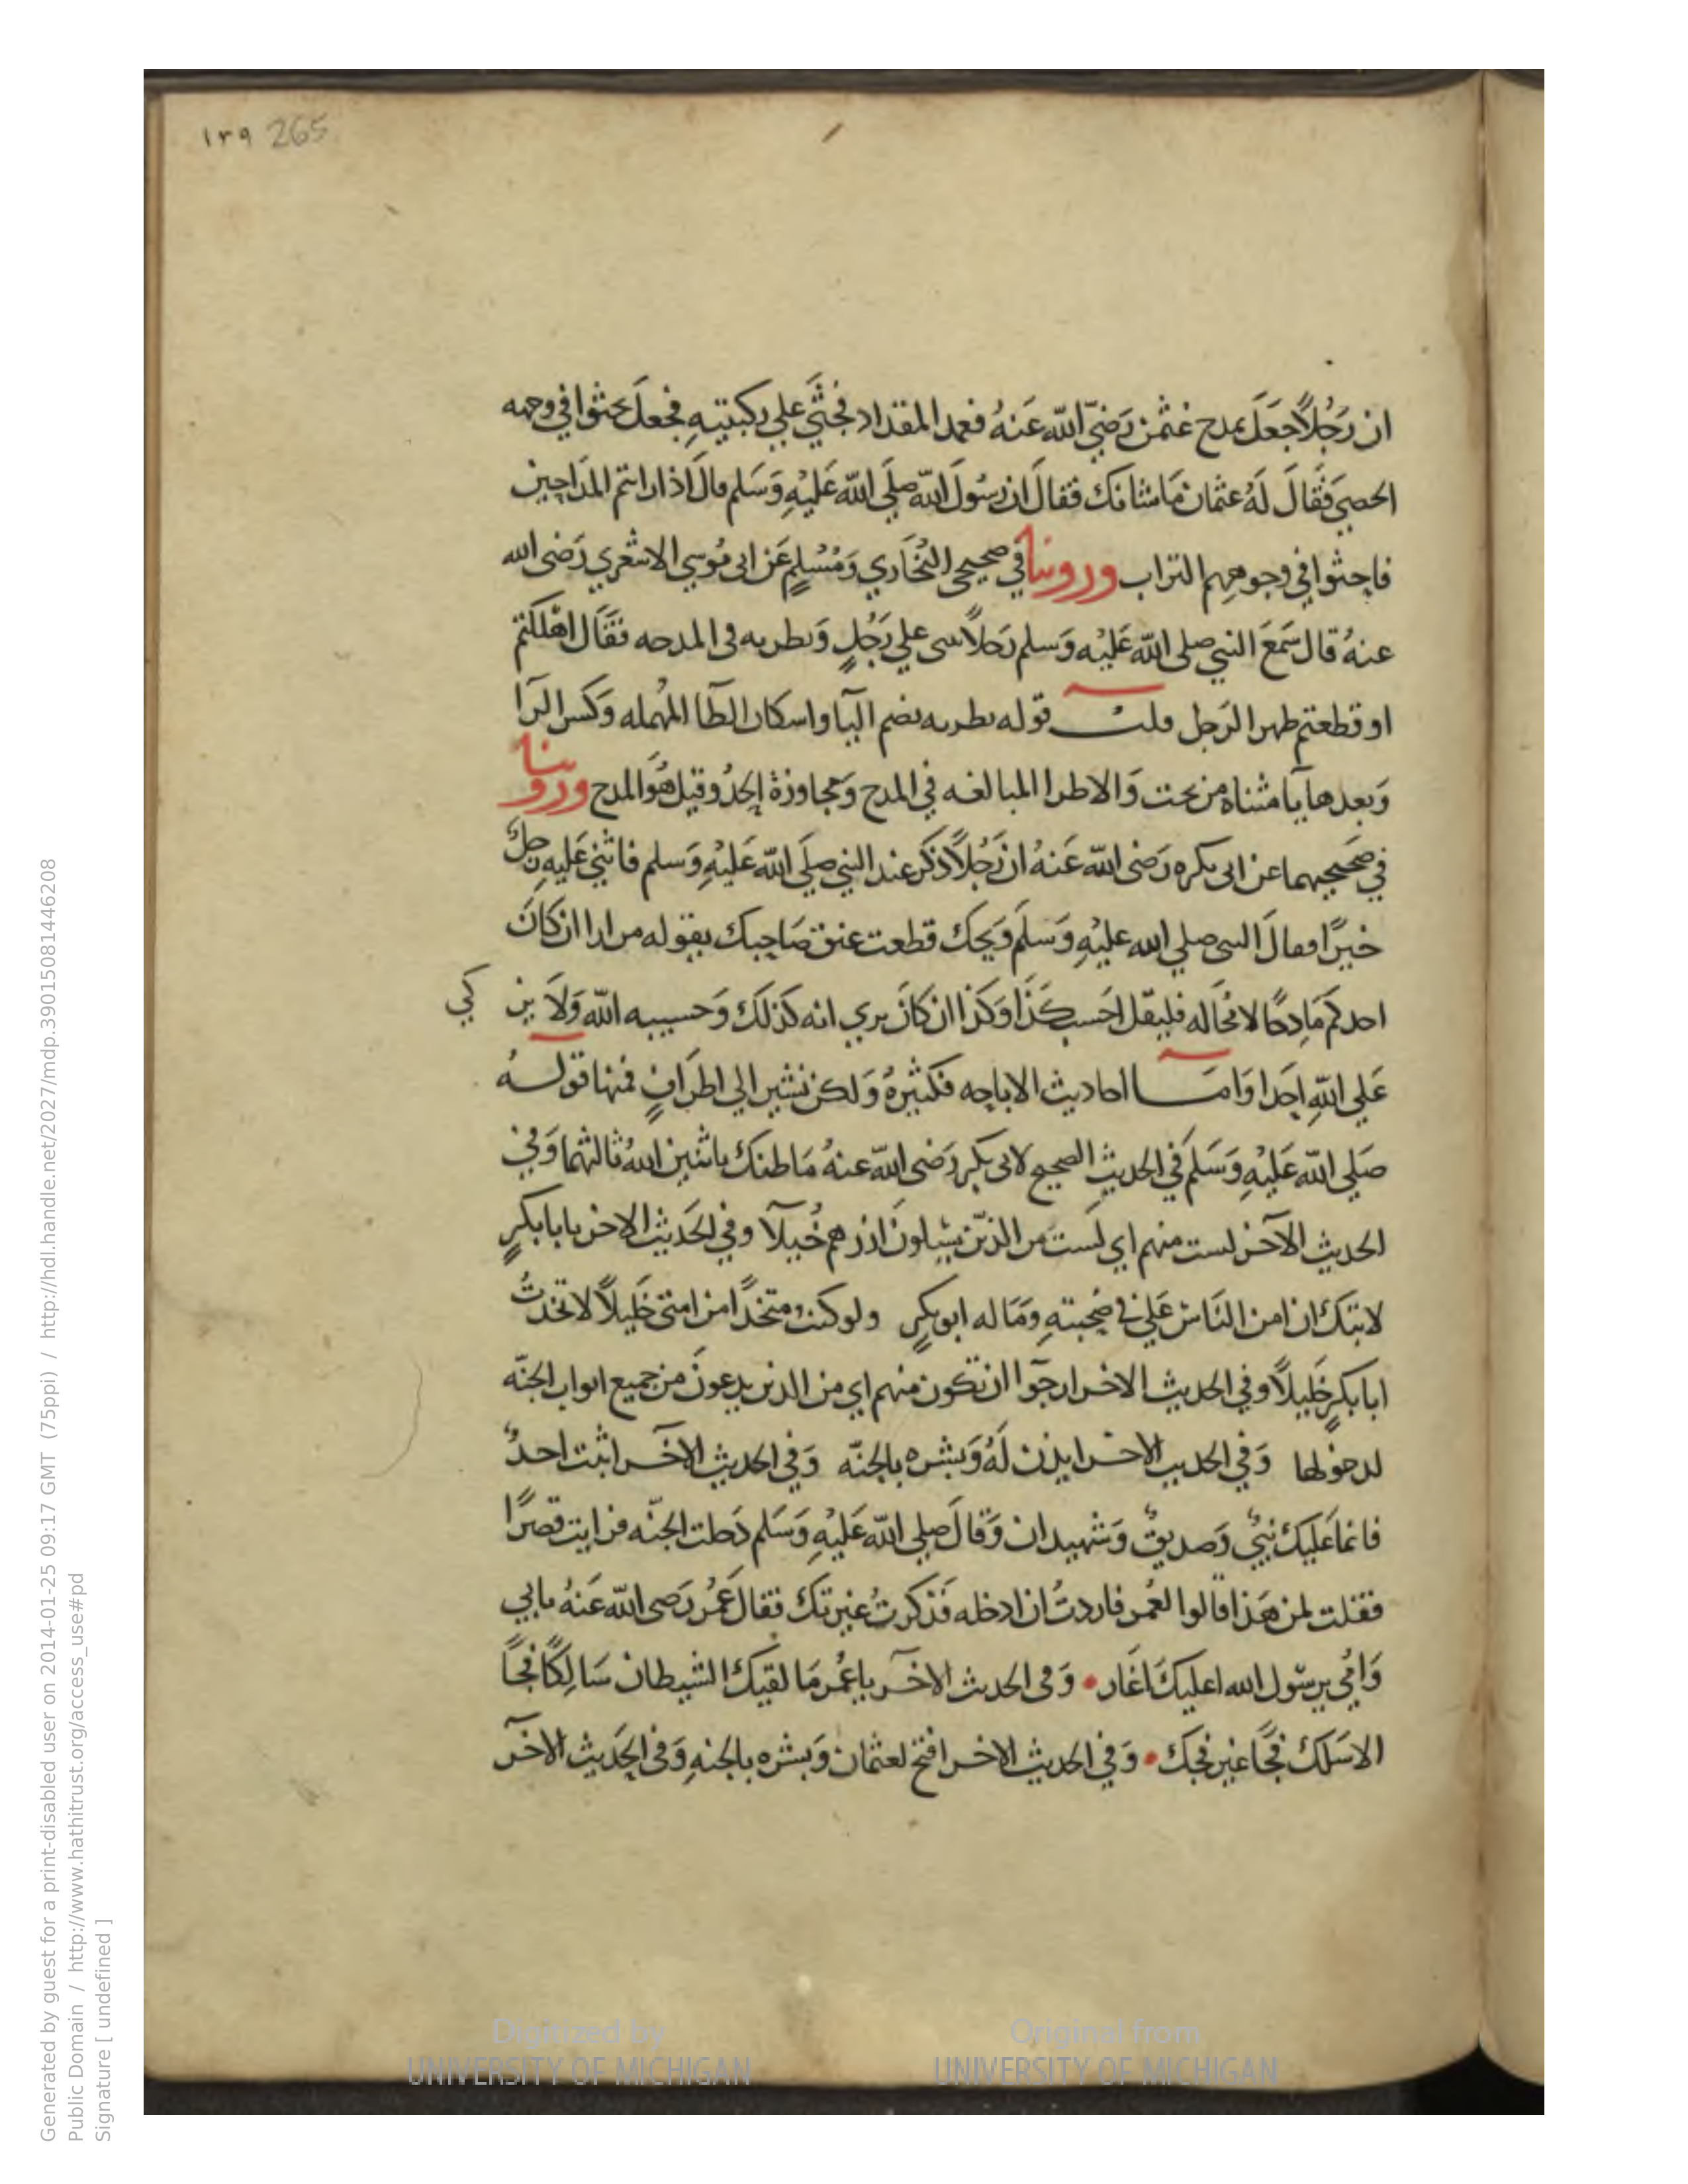 ١٣٩ 265
ان رَجُلاً جَعَلَ يمدح عثمٰن رَضيَ اللّه عَنهُ فعمد المقداد فجثَي علي ركبتيهِ فجعلَ يحثوا في وجهه
الحصي فقَالَ لَهُ عثمان مَا شانك فقالَ ان رسُولَ اللّه صلَي اللّه عَليْهِ وَسَلم قالَ اذا راىتم المدَاحِين
فاحثوا في وجوههم التراب وروينا في صحيحي البُخَاري وَمُسْلمٍ عَن ابى مُوسي الاشعري رَضى الله
عنهُ قال سَمعَ النبي صلى اللّه عَليْه وَسلم رَجلاً ىىىى علي رَجُلٍ وَىطرىه فى المدحه فقَال اهْلكتم
او قطعتم ظهر الرَجل قلت قوله ىطرىه بضم اليآ واسكان الطآ المهمله وَكسر الرآ
وَبعدها يآ مثناه من تحت وَالاطرا المبالغه في المدح وَمجاوزة الحدُ وقيل هُوَ المدح وروينا
في صَحيحيهما عن ابى بكره رَضى اللّه عَنهُ ان رَجُلاً ذكر عند النبي صلَي اللّه عَليْهِ وَسلم فاثني عَليهِ رجلٌ
خيرًا فقالَ النبى صلي الله عليْهِ وَسَلمَ وَيحك قطعت عنق صَاحبك يقوله مرارا ان كانَ
احدكم مَادِحًا لا مُحَاله فليقل احَسب كَذَا وَكذا ان كانَ يري انه كذلكَ وَحسيبه اللّه وَلاَ يز كي
عَلي اللّهِ احَدا وَامَا احاديث الاباحه فكثيرهُ وَلكن نشير الي اطرَافٍ فمنها قولهُ
صَلي اللّه عَليْهِ وَسَلم في الحديثِ الصحيح لابى بكر رَضى اللّه عنهُ مَا ظنك باثنين اللهُ ثالثهما وَفي
الحديث الآخر لست منهم اي لَستَ من الذيّن يسبلونَ ازرهم خُيلآ وفي الحَديث الاخر يابا بكرٍ
لا تبك ان امن النَاس عَلي في صُحبتهِ وَمَاله ابو بكرٍ ولو كنت متخذًا من امتى خَليلاً لاتخذتُ
ابا بكرٍ خَليلاً وفي الحديث الاخر ارجوا ان تكون منهم اي من الذين يدعونَ من جميع ابواب الجنّه
لدخولها وَفي الحديث الاخر ايذن لَهُ وَبشره بالجنّه وَفي الحديث الاخر اثبت احدُ
فانماَ عَليكَ نبيٌ وَصديقٌ وَشهيدان وَقالَ صلي اللّه عَليْهِ وَسَلم دَخلت الجنّه فرايت قصرًا
فقلت لمن هَذا قالوا لعُمر فاردتُ ان ادخله فَذكرتُ غيرتكَ فقالَ عُمَرُ رَضى اللّه عَنهُ بابي
وَامي يرسّول الله اعليكَ اَغَار وَفى الحديث الاخر ياعُمر مَا لقيكَ الشيطان سَالِكًا فجًا
الا سَلك فجًا غير فجك وَفي الحديث الاخر افتح لعثمان وَبشره بالجنهِ وَفى الحَديث الاخر
Generated by guest for a print-disabled user on 2014-01-25 09:17 GMT (75ppi) / http://hdl.handle.net/2027/mdp.39015081446208
Public Domain / http://www.hathitrust.org/access_use#pd
Signature [ undefined ]
Digitized by
UNIVERSITY OF MICHIGAN
Original from
UNIVERSITY OF MICHIGAN